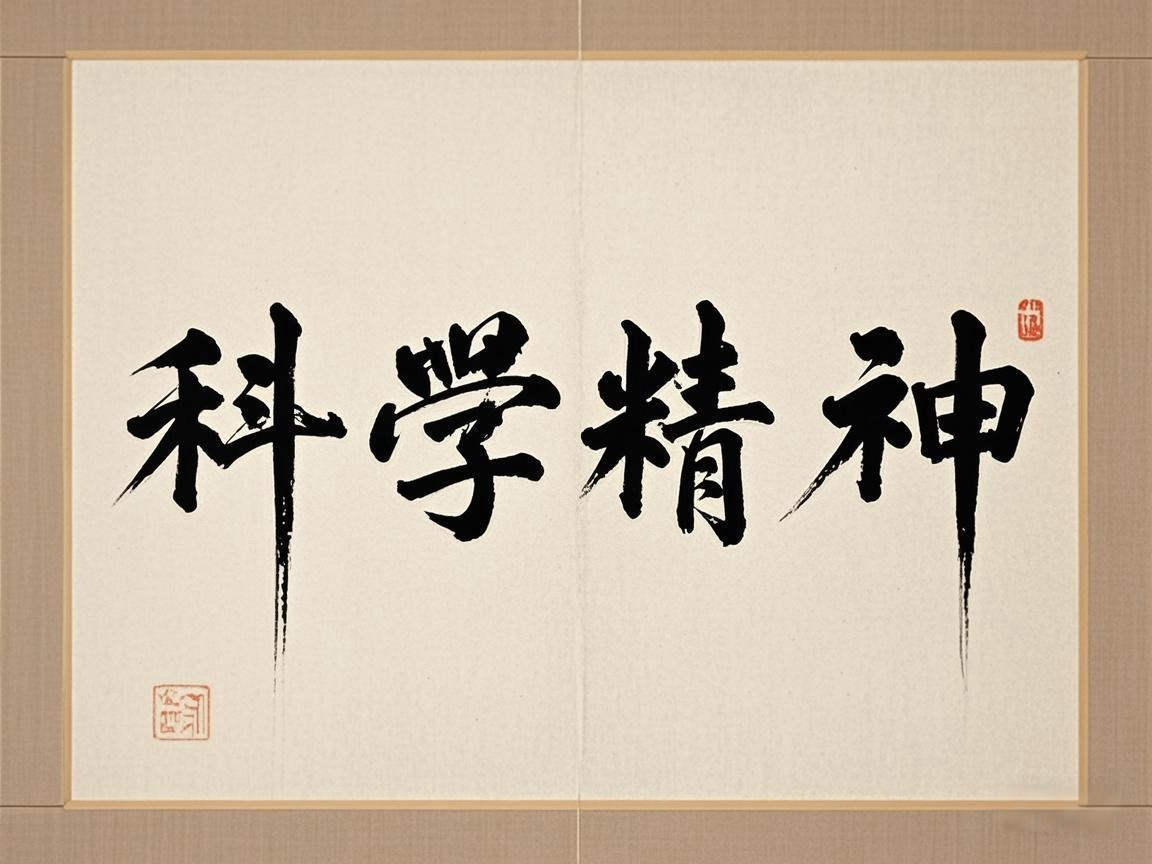 科學精神